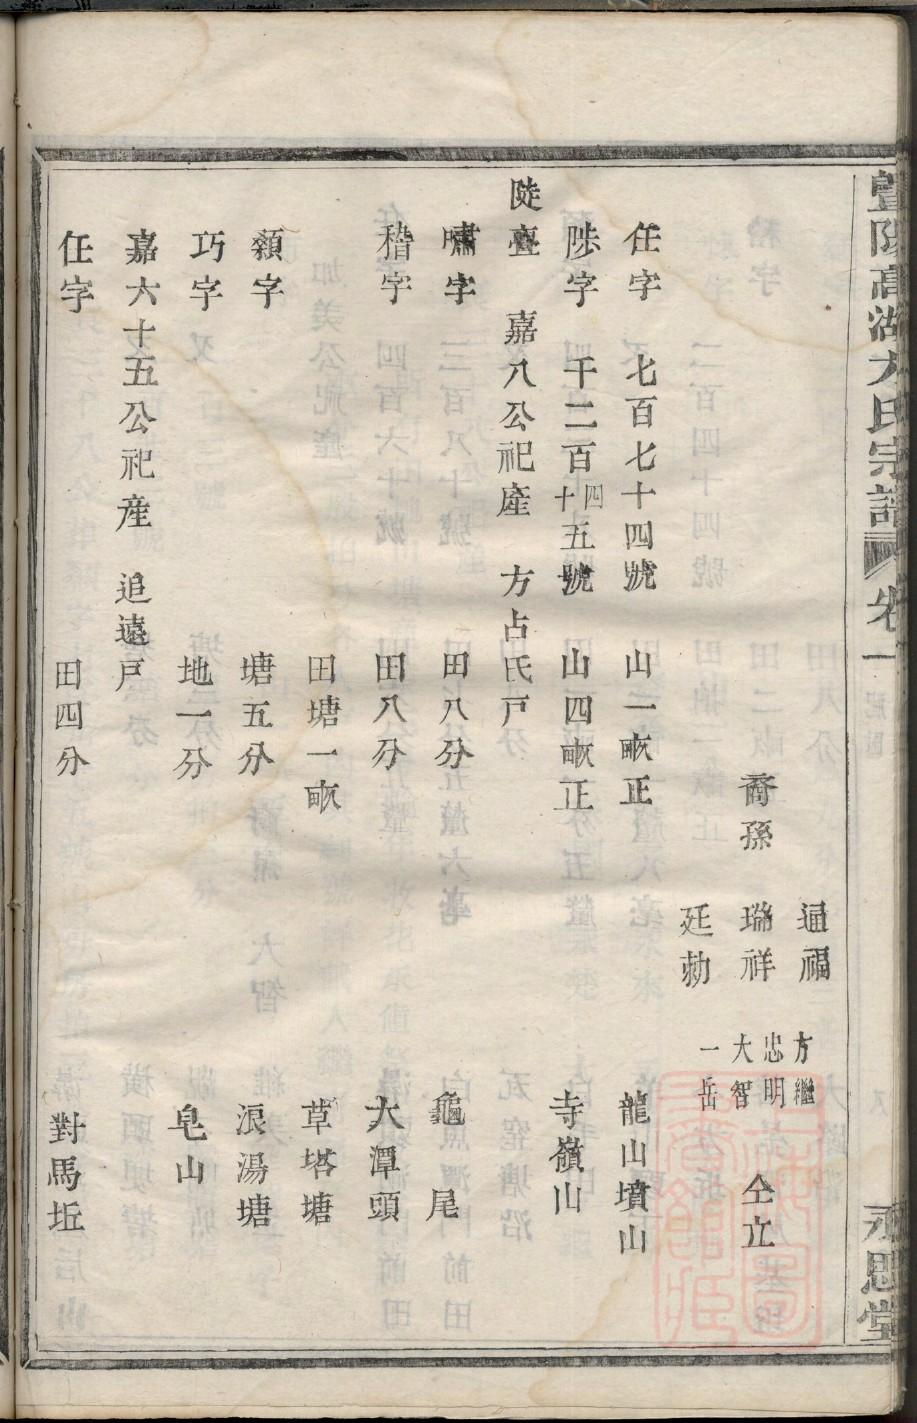 暨陽高湖方氏宗譜 卷一 永思堂
通福 方繼
裔孫 瑞祥 忠明 仝立
廷勑 大智
一岳
任字 七百七十四號 山一畝正 龍山墳山
陟字 千二百四十五號 山四畝正 寺嶺山
陡亹 嘉八公祀產 方占氏戶
嘯字 田八分 龜尾
稽字 田八分 大潭頭
田塘一畝 草塔塘
纇字 塘五分 浪湯塘
巧字 地一分 皂山
嘉六十五公祀產 追遠戶
任字 田四分 對馬坵